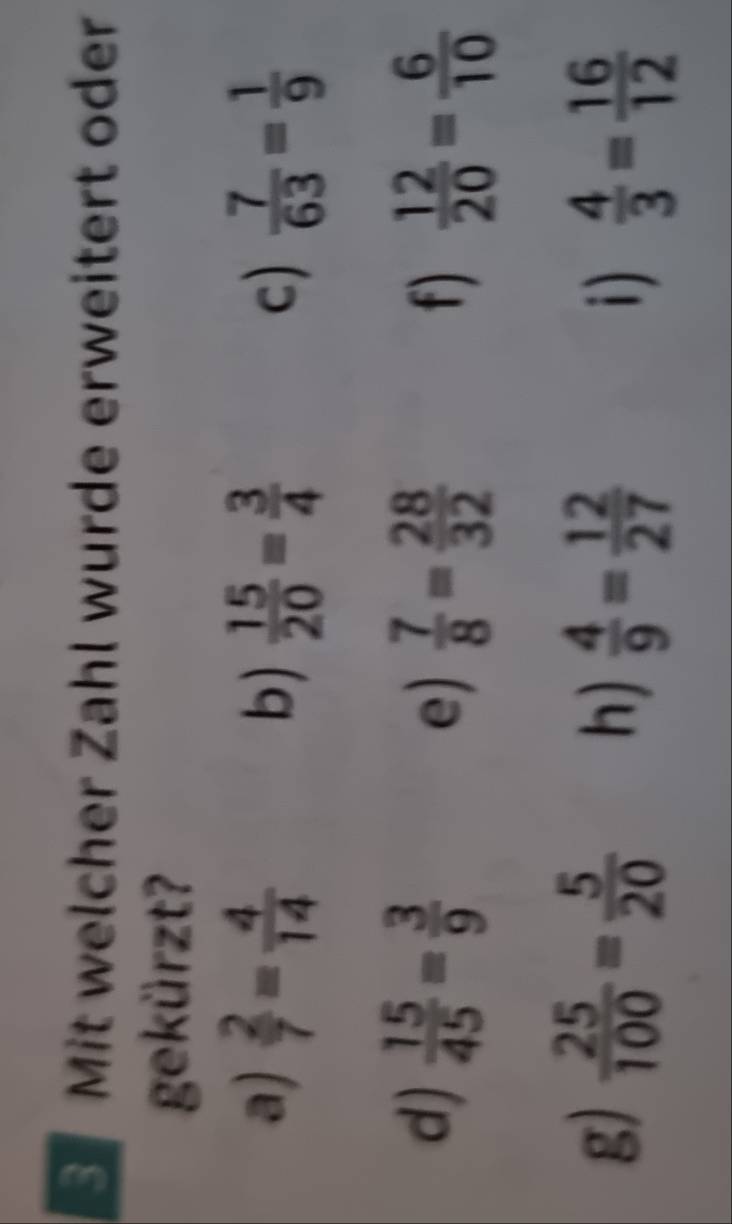 3 Mit welcher Zahl wurde erweitert oder
gekürzt?
a) 2/7 = 4/14 b) 15/20 = 3/4 c) 7/63 = 1/9
d) 15/45 = 3/9 e) 7/8 = 28/32 f) 12/20 = 6/10
g) 25/100 = 5/20 h) 4/9 = 12/27 i) 4/3 = 16/12